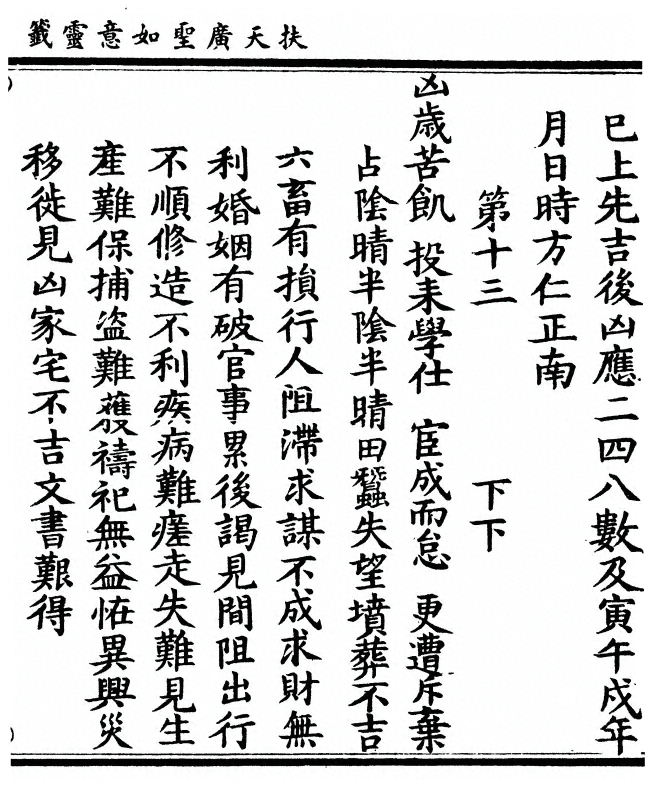 扶天廣聖如意靈籤
已上先吉後凶應二四八數及寅午戌年
月日時方仁正南
第十三 下下
凶歲苦飢 投耒學仕 宦成而怠 更遭斥棄
占陰晴半陰半晴田蠶失望墳葬不吉
六畜有損行人阻滯求謀不成求財無
利婚姻有破官事累後謁見間阻出行
不順修造不利疾病難瘥走失難見生
產難保捕盜難獲禱祀無益恠異興災
移徙見凶家宅不吉文書艱得